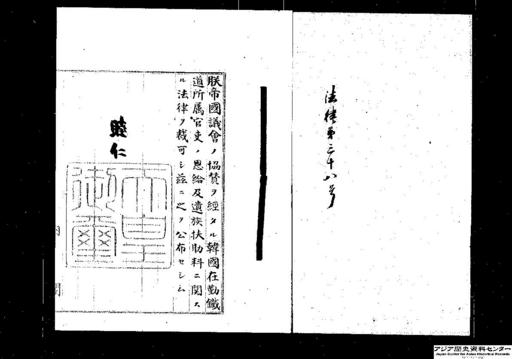 法律第三十八号
朕帝國議會ノ協賛ヲ經タル韓國在勤鐵
道所属官吏ノ恩給及遺族扶助料ニ関ス
ル法律ヲ裁可シ茲ニ之ヲ公布セシム
睦仁
天皇御璽
内閣
アジア歴史資料センター
Japan Center for Asian Historical Records